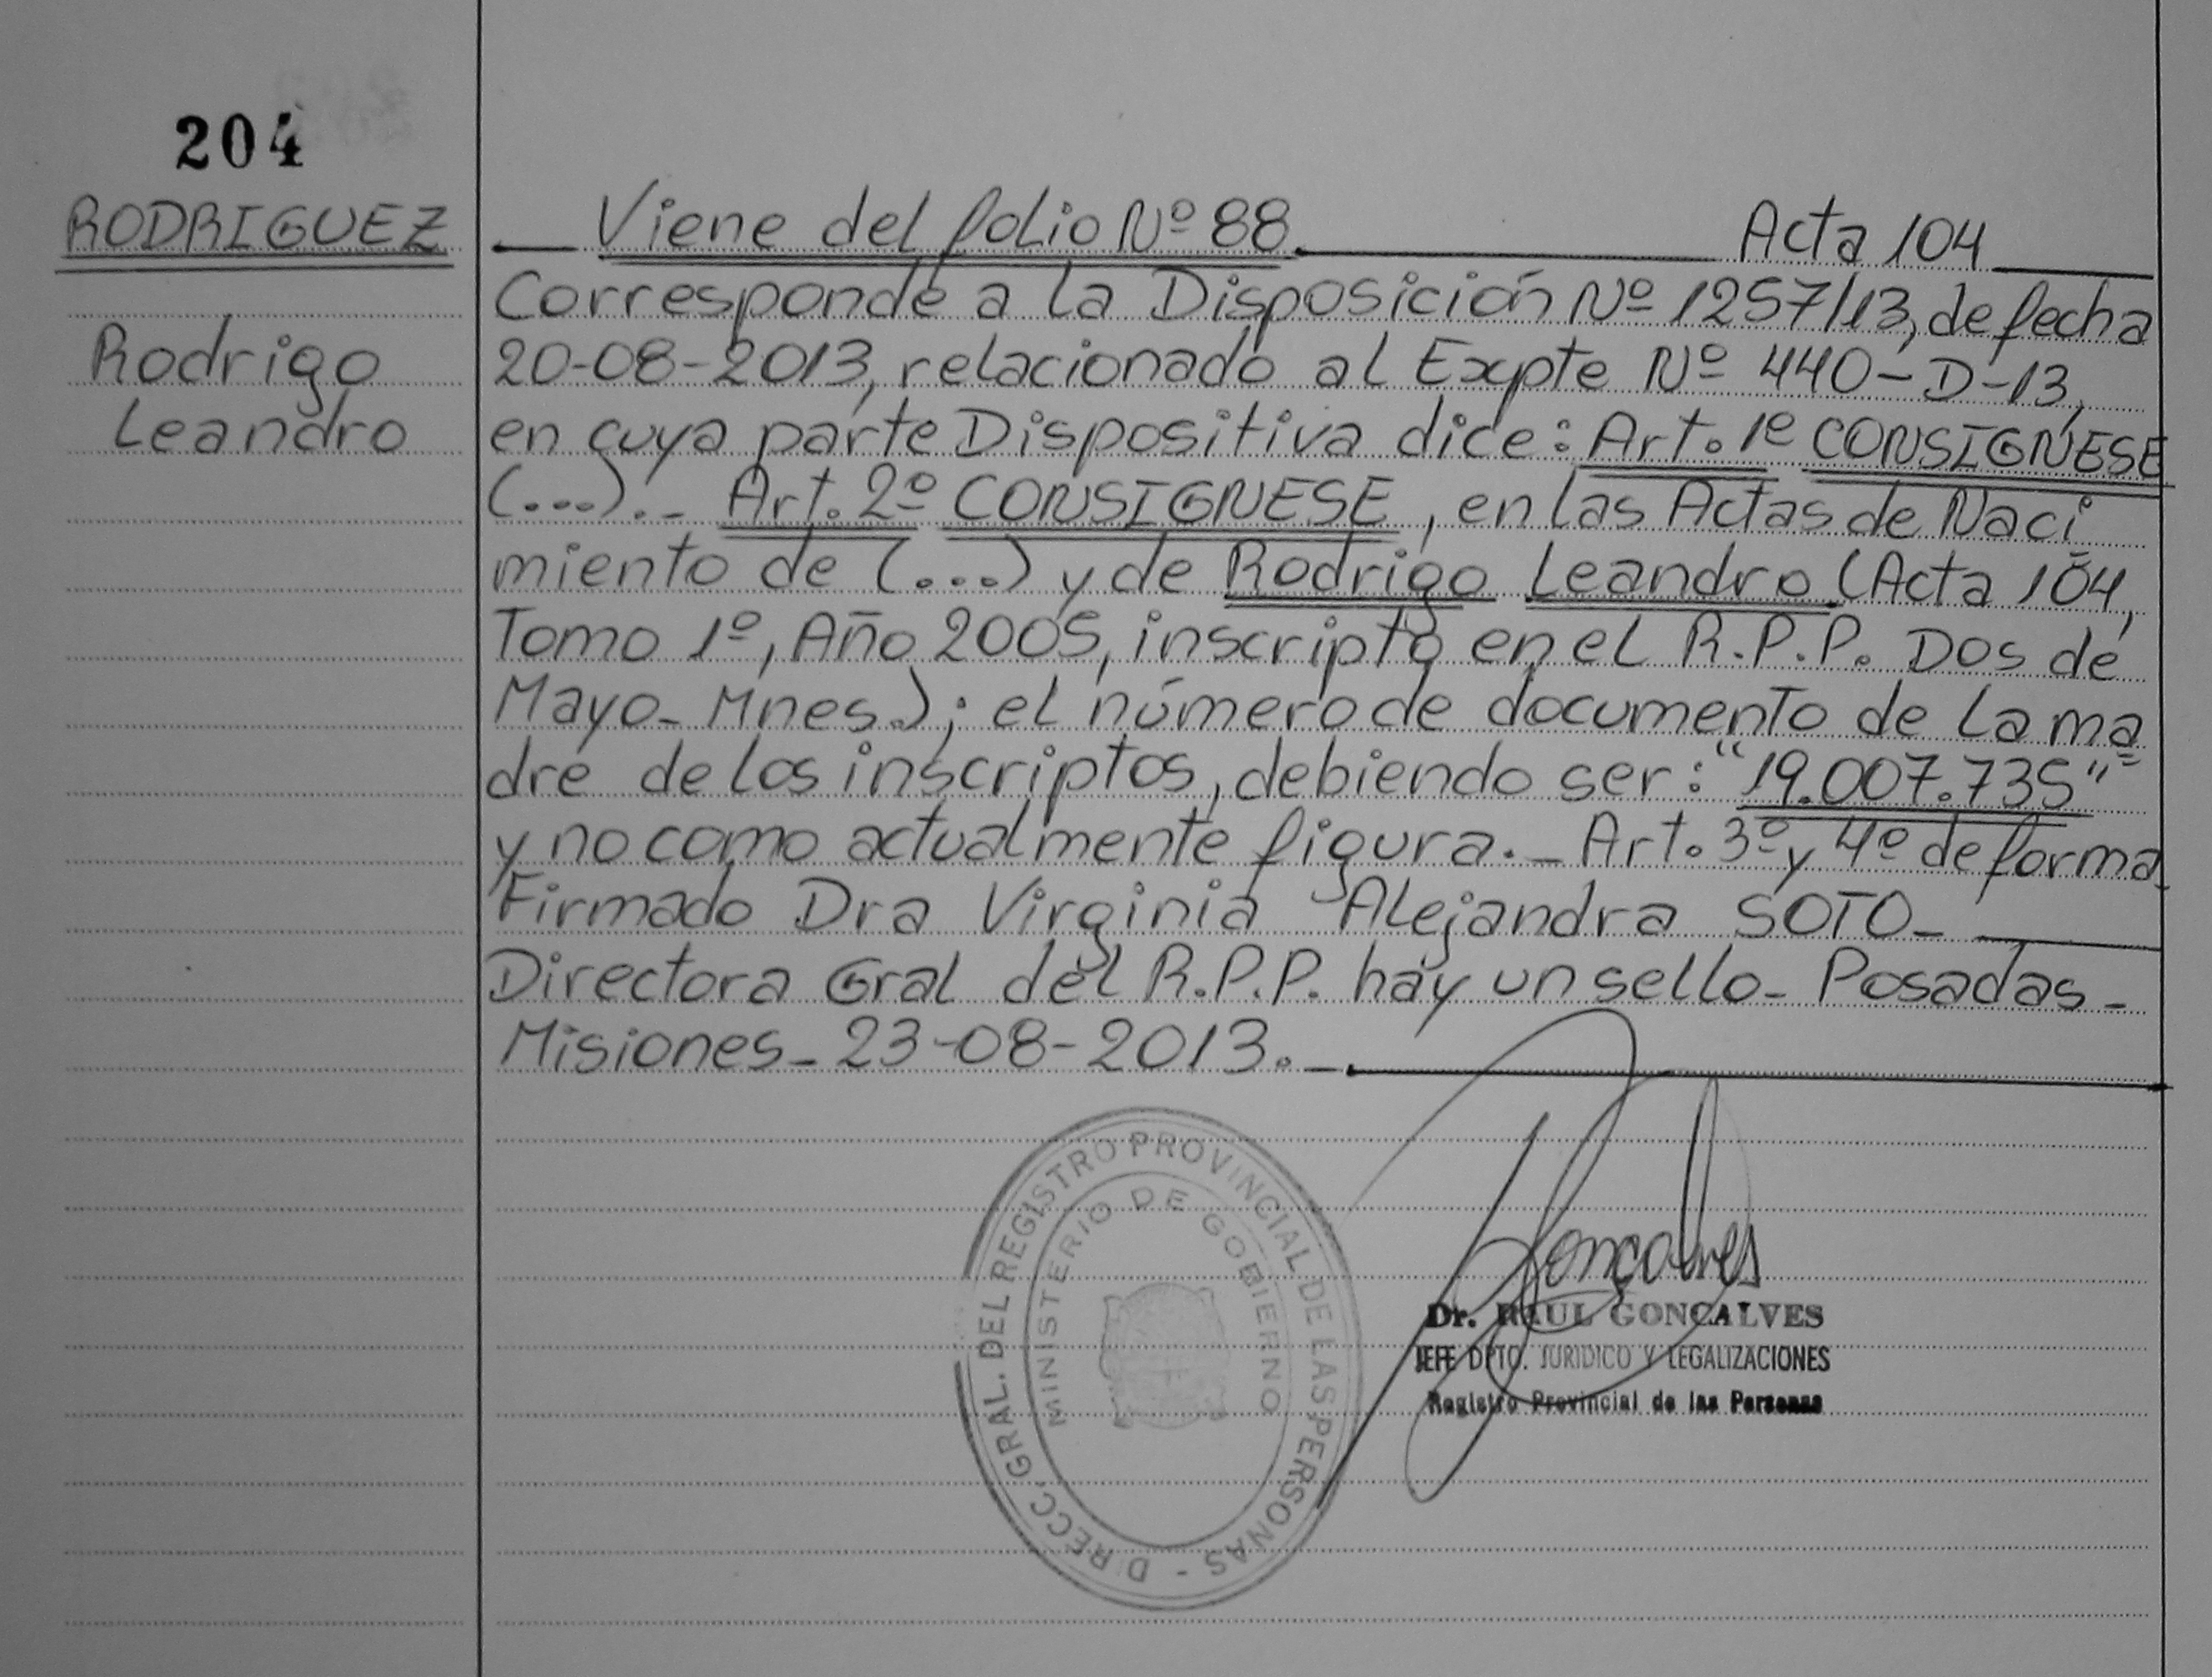 204
RODRIGUEZ
Rodrigo
Leandro
Viene del folio Nº 88. Acta 104
Corresponde a la Disposición Nº 1257/13, de fecha
20-08-2013, relacionado al Expte Nº 440-D-13,
en cuya parte Dispositiva dice: Art. 1º CONSIGNESE
(...)._ Art. 2º CONSIGNESE, en las Actas de Naci
miento de (...) y de Rodrigo Leandro (Acta 104,
Tomo 1º, Año 2005, inscripto en el R.P.P. Dos de
Mayo- Mnes.); el número de documento de la ma
dre de los inscriptos, debiendo ser: "19.007.735"
y no como actualmente figura._ Art. 3º y 4º de forma
Firmado Dra Virginia Alejandra SOTO-
Directora Gral del R.P.P. hay un sello- Posadas-
Misiones- 23-08-2013._
DIRECC. GRAL. DEL REGISTRO PROVINCIAL DE LAS PERSONAS -
MINISTERIO DE GOBIERNO
Gonçalves
Dr. RAUL GONCALVES
JEFE DPTO. JURIDICO Y LEGALIZACIONES
Registro Provincial de las Personas